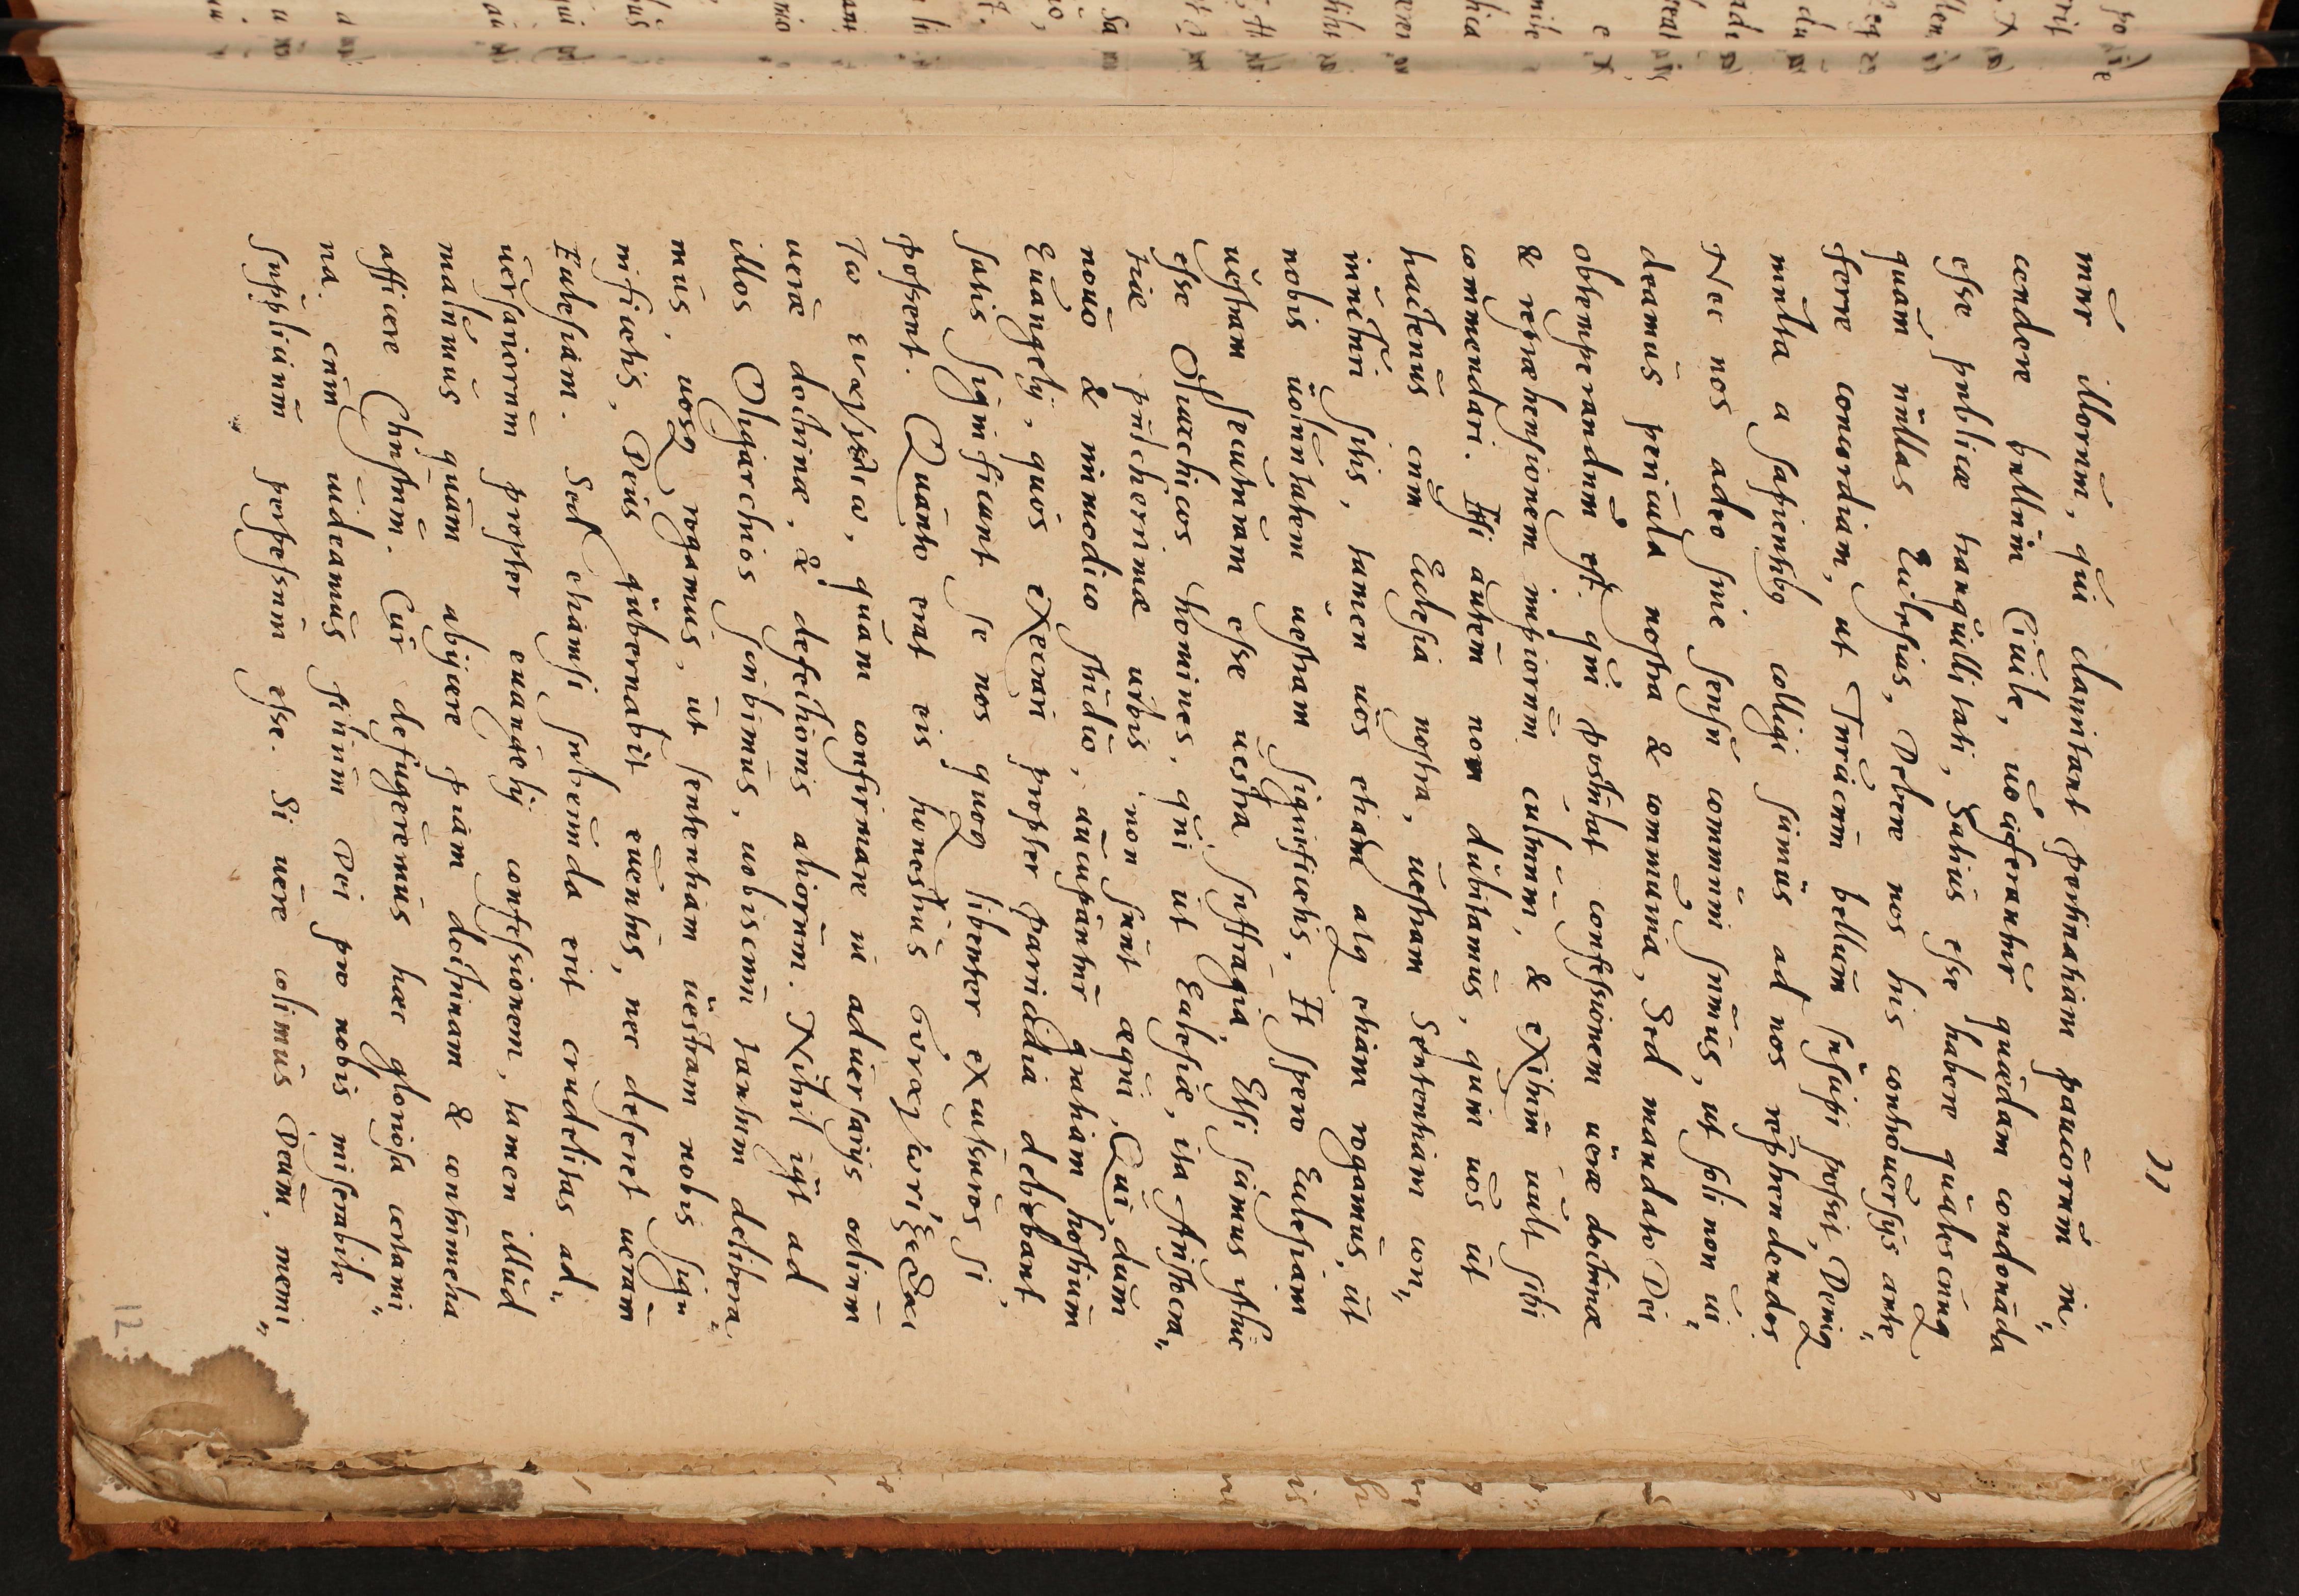 11
mur illorum, qui damnant pertinaciam paucorum in„
cendere bellum Ciuile, uociferantur quaedam condonāda
esse publicae tranquillitati, Satius esse habere qualescunq
quam nullas Ecclesias, Debere nos his controuersijs ante„
ferre concordiam, ut Turcicum bellum suscipi possit, Deniq
multa a sapientibo colligi sumus ad nos rephendendos
Nec nos adeo sine sensu communi sumus, ut soli non ui„
deamus pericula nostra & communia, Sed mandato Dei
obtemperandum est, qui postulat confessionem uerae doctrinae
& reprehensionem impiorum cultuum, & Exitum uult sibi
commendari. Etsi autem non dubitamus, quin uos ut
hactenus cum Ecclesia nostra, uestram Sententiam con„
iuncturi sitis, tamen uos etiam atq etiam rogamus, ut
nobis uoluntatem uestram significetis, Et spero Ecclesiam
uestram secuturam esse uestra suffragia. Etsi scimus istic
esse Oligarchicos homines, qui ut Ecclesiae, ita Aristocra„
tiae pulcherrimae urbis non sunt aequi, Qui dum
nouo & immodico studio, aucupantur gratiam hostium
Euangelij, quos execrari propter parricidia debebant,
satis significant se nos quoq libenter exutsuros si
possent. Quanto erat eis honestius
τῶ quam confirmare in aduersarijs odium
uerae doctrinae, & defectionis aliorum. Nihil igt ad
illos Oligarchios scribimus, uobiscum tantum delibera„
mus, uosq rogamus, ut sententiam uestram nobis signi„
nificetis, Deus gubernabit euentus, nec deseret ueram
Ecclesiam. Sed etiamsi subeunda erit crudelitas ad„
uersariorum propter euangelij confessionem, tamen illud
malumus quam abijcere piam doctrinam & contumelia
afficere Christum. Cur defugeremus haec gloriosa certami„
na, cum uideamus filium Dei pro nobis miserabile
supplicium perpessum esse. Si uere colimus Deum, memi„
12